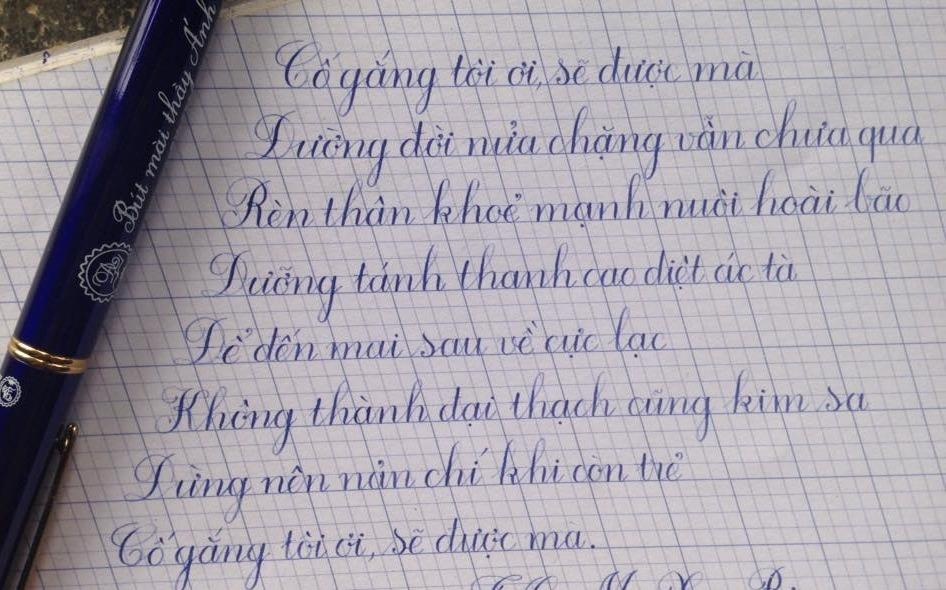 Bút mài thầy Ánh
Cố gắng tôi ơi, sẽ được mà
Đường đời nửa chặng vẫn chưa qua
Rèn thân khoẻ mạnh nuôi hoài bão
Dưỡng tánh thanh cao diệt ác tà
Để đến mai sau về cực lạc
Không thành đại thạch cũng kim sa
Đừng nên nản chí khi còn trẻ
Cố gắng tôi ơi, sẽ được mà.